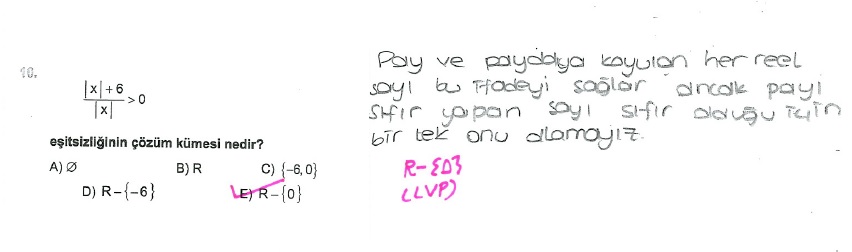 10.
|x|+6
|x| >0
eşitsizliğinin çözüm kümesi nedir?
A) Ø B) R C) {-6,0}
D) R-{-6} E) R-{0}
Pay ve paydaya koyulan her reel
sayı bu ifadeyi sağlar ancak payi
sıfır yapan sayı sıfır olduğu için
bir tek onu alamayız.
R-{0}
(LVP)